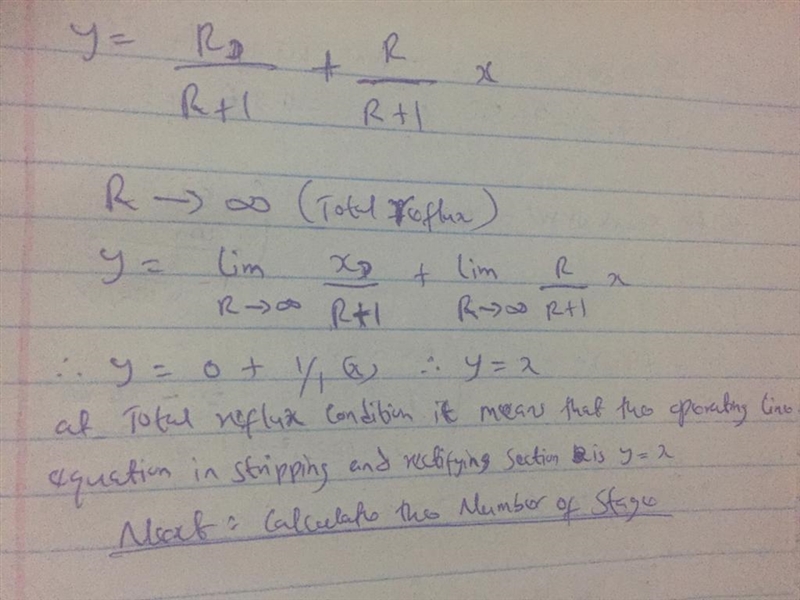 y = R_D / (R+1) + R / (R+1) x
R → ∞ (Total Reflux)
y = lim R→∞ x_D / (R+1) + lim R→∞ R / (R+1) x
∴ y = 0 + 1/1 (x) ∴ y = x
at Total reflux condition it means that the operating line
equation in stripping and rectifying section is y = x
Next: Calculate the Number of Stage